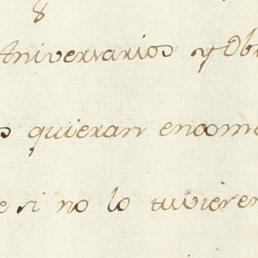 8
Aniversarios y Ob
s quieran encome
e si no lo tuvieren